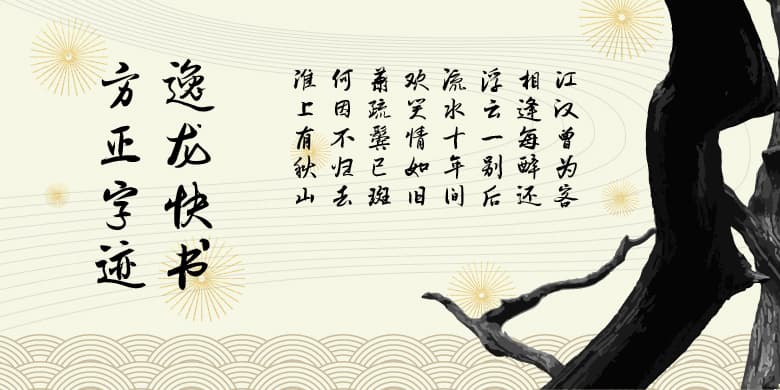 方正字迹
逸龙快书
江汉曾为客
相逢每醉还
浮云一别后
流水十年间
欢笑情如旧
萧疏鬓已斑
何因不归去
淮上有秋山